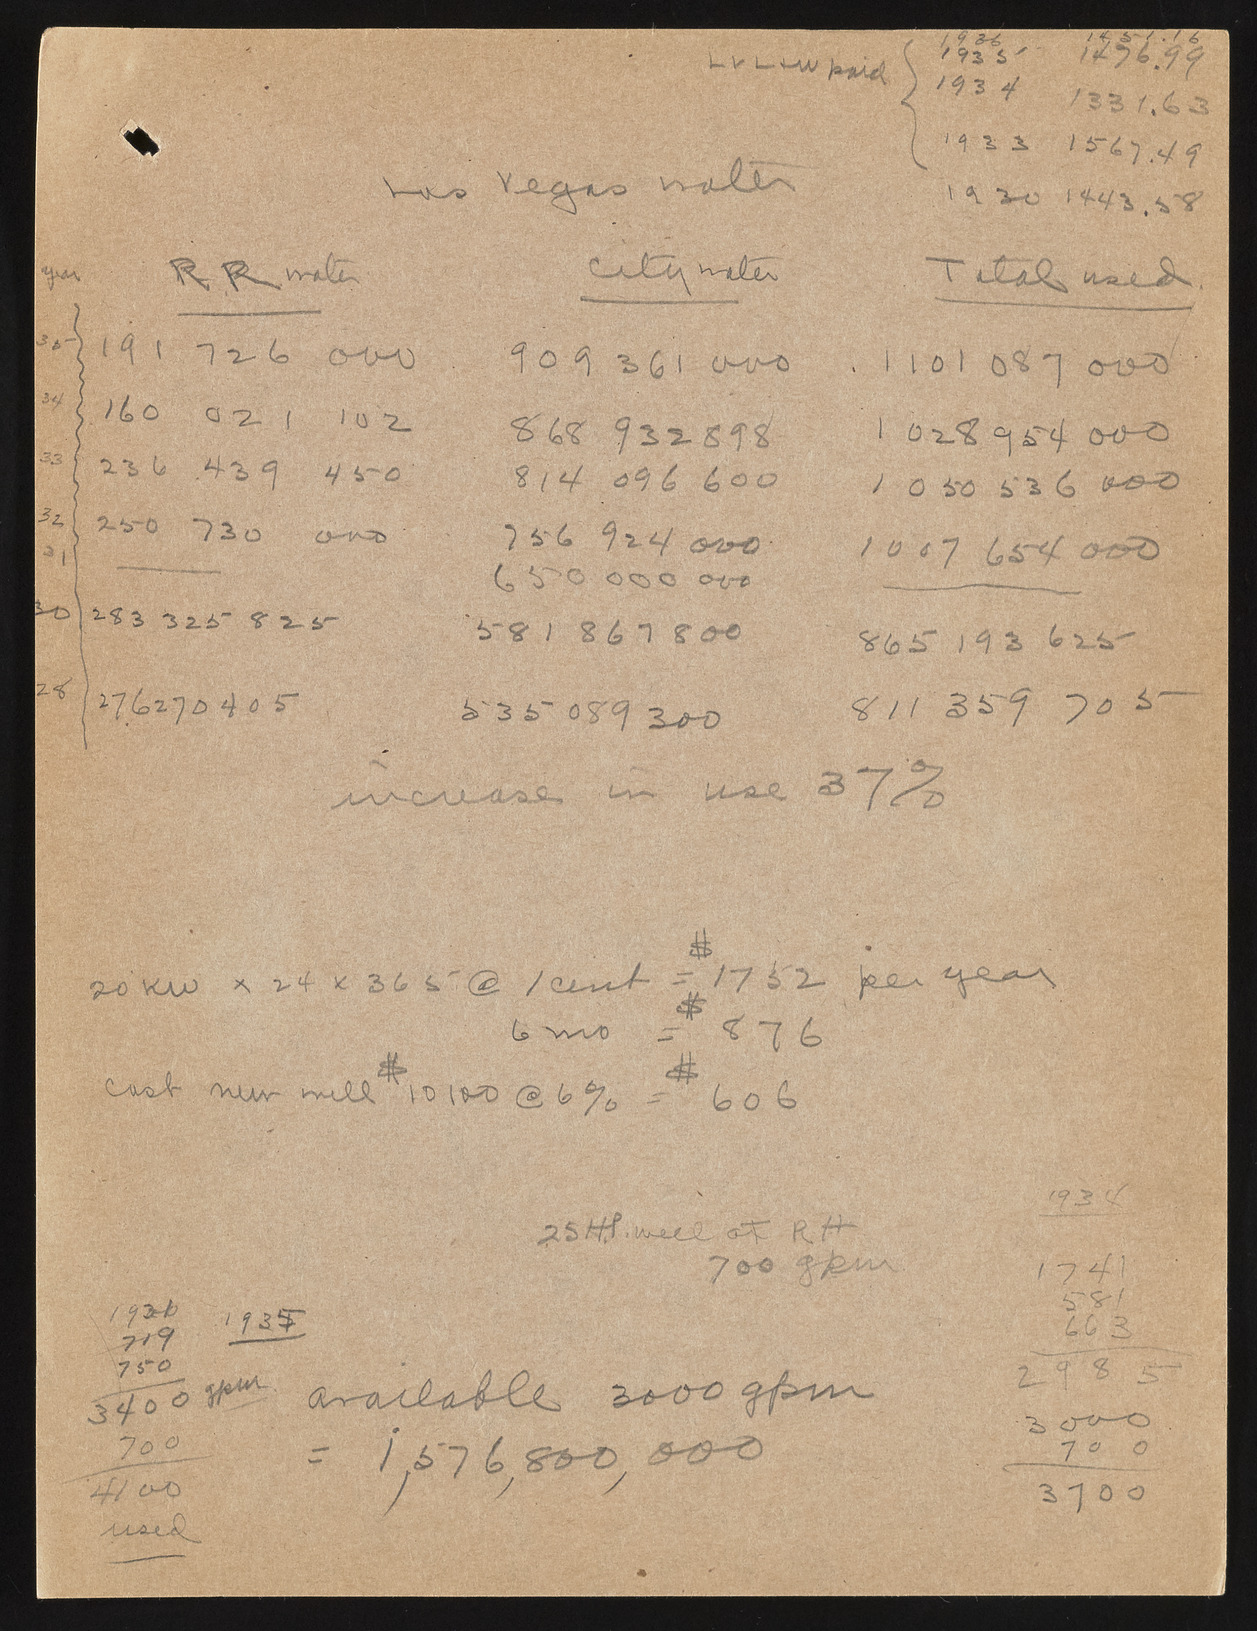 1936 1451.16
L V L + W paid 1935 1476.99
1934 1331.63
1933 1567.49
1930 1443.58
Las Vegas water
year RR water City water Total used.
35 191 726 000 909 361 000 1101 087 000
34 160 021 102 868 932 898 1 028 954 000
33 236 439 450 814 096 600 1 050 536 000
32 250 730 000 756 924 000 1007 654 000
31 650 000 000
30 283 325 825 581 867 800 865 193 625
28 276270405 535 089 300 811 359 705
increase in use 37%
20 KW x 24 x 365 @ 1 cent = $1752 per year
6 mo = $876
Cost new well $10100 @ 6% = $606
1934
25 H.P. well at RH
700 gpm
1741
581
663
2985
3000
700
3700
1936 1935
719
750
3400 gpm
700
4100
used
available 3000 gpm
= 1,576,800,000